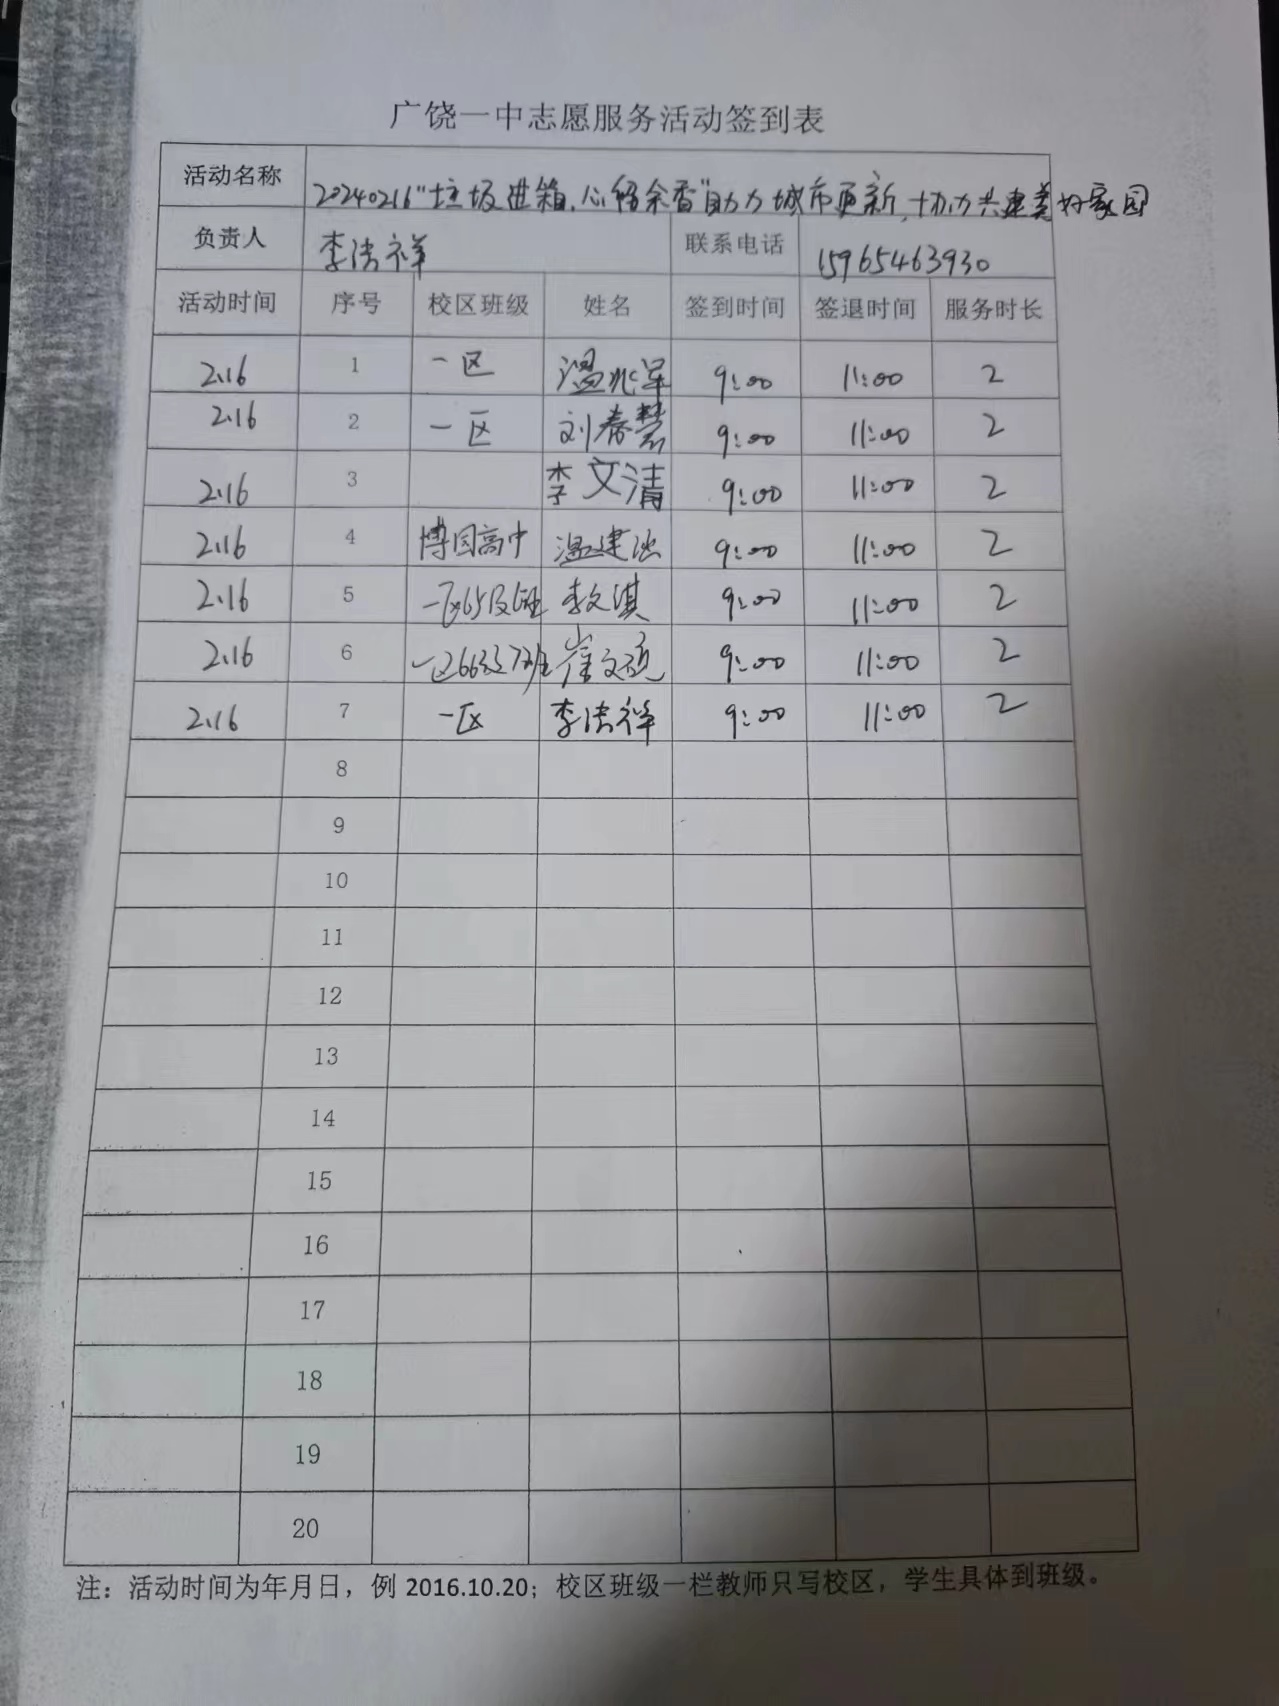 广饶一中志愿服务活动签到表
活动名称 20240216"垃圾进箱,心留余香"助力城市更新,协力共建美好家园
负责人 李法祥 联系电话 15965463930
活动时间 序号 校区班级 姓名 签到时间 签退时间 服务时长
2.16 1 一区 温兆军 9:00 11:00 2
2.16 2 一区 刘春慧 9:00 11:00 2
2.16 3 李文清 9:00 11:00 2
2.16 4 博园高中 温建 9:00 11:00 2
2.16 5 一区65级 李文淇 9:00 11:00 2
2.16 6 一区66级7班 崔文硕 9:00 11:00 2
2.16 7 一区 李法祥 9:00 11:00 2
8
9
10
11
12
13
14
15
16
17
18
19
20
注：活动时间为年月日，例 2016.10.20；校区班级一栏教师只写校区，学生具体到班级。